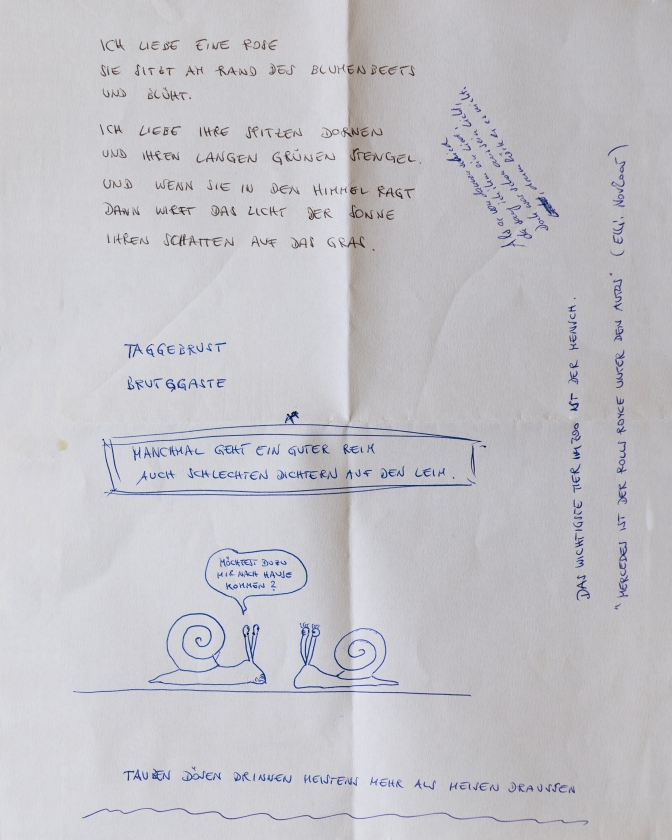 ICH LIEBE EINE ROSE
SIE SITZT AM RAND DES BLUMENBEETS
UND BLÜHT.
ICH LIEBE IHRE SPITZEN DORNEN
UND IHREN LANGEN GRÜNEN STENGEL.
UND WENN SIE IN DEN HIMMEL RAGT
DANN WIRFT DAS LICHT DER SONNE
IHREN SCHATTEN AUF DAS GRAS.
TAGGEBRUST
BRUTGGASTE
MANCHMAL GEHT EIN GUTER REIM
AUCH SCHLECHTEN DICHTERN AUF DEN LEIM.
MÖCHTEST DU ZU
MIR NACH HAUSE
KOMMEN?
TAUBEN DÖSEN DRINNEN MEISTENS MEHR ALS MEISEN DRAUSSEN
DAS WICHTIGSTE TIER IM ZOO IST DER MENSCH.
"MERCEDES IST DER ROLLS ROYCE UNTER DEN AUTOS" (ELLI. NOV 2005)